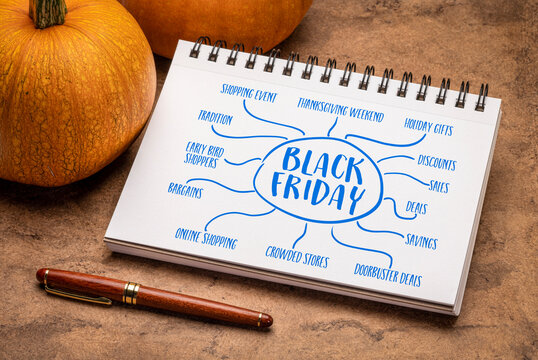 SHOPPING EVENT
THANKSGIVING WEEKEND
HOLIDAY GIFTS
TRADITION
EARLY BIRD
SHOPPERS
BARGAINS
BLACK
FRIDAY
DISCOUNTS
SALES
DEALS
SAVINGS
ONLINE SHOPPING
CROWDED STORES
DOORBUSTER DEALS